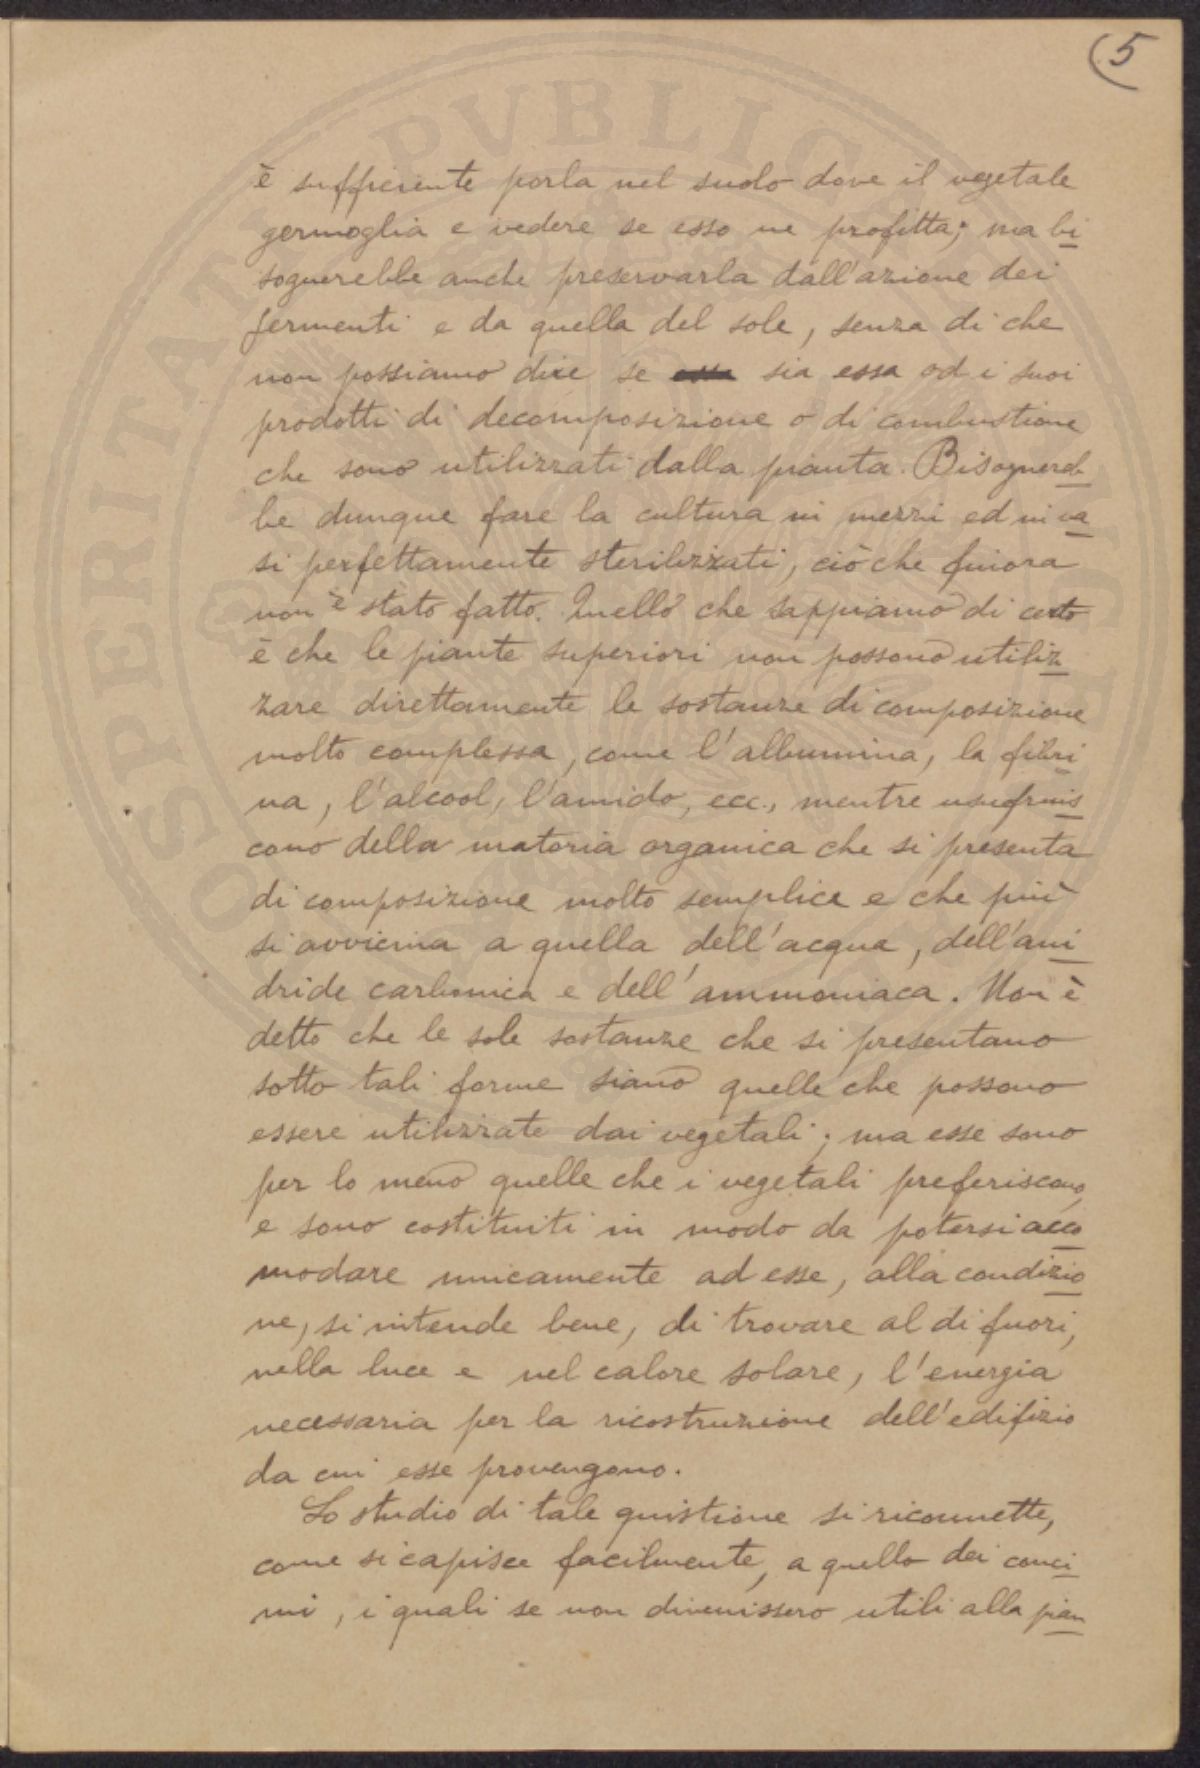 5
è sufficiente porla nel suolo dove il vegetale
germoglia e vedere se esso ne profitta; ma bi
sognerebbe anche preservarla dall'azione dei
fermenti e da quella del sole, senza di che
non possiamo dire se sia essa od i suoi
prodotti di decomposizione o di combustione
che sono utilizzati dalla pianta. Bisognereb
be dunque fare la cultura in mezzi ed in va
si perfettamente sterilizzati, ciò che finora
non è stato fatto. Quello che sappiamo di certo
è che le piante superiori non possono utiliz
zare direttamente le sostanze di composizione
molto complessa, come l'albumina, la fibri
na, l'alcool, l'amido, ecc., mentre usufruis
cono della materia organica che si presenta
di composizione molto semplice e che più
si avvicina a quella dell'acqua, dell'ani
dride carbonica e dell'ammoniaca. Non è
detto che le sole sostanze che si presentano
sotto tali forme siano quelle che possono
essere utilizzate dai vegetali; ma esse sono
per lo meno quelle che i vegetali preferiscono,
e sono costituiti in modo da potersi acco
modare unicamente ad esse, alla condizio
ne, si intende bene, di trovare al di fuori,
nella luce e nel calore solare, l'energia
necessaria per la ricostruzione dell'edifizio
da cui esse provengono.
Lo studio di tale quistione si riconnette,
come si capisce facilmente, a quello dei conci
mi, i quali se non divenissero utili alla pian